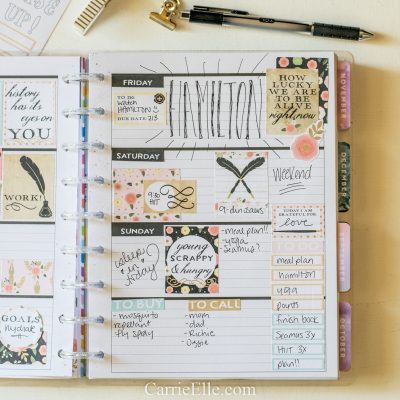 UP!
history
has its
eyes on
YOU
WORK!
GOALS
hydrate
FRIDAY
TO DO
watch
HAMILTON
DUE DATE 2/3
HAMILTON
HOW
LUCKY
WE ARE
TO BE
ALIVE
right now
SATURDAY
9:30
HIIT
9-dinosaurs
weekend
TODAY I AM
GRATEFUL FOR
love
SUNDAY
sleep
in
today
young
SCRAPPY
& hungry
- meal plan!!
- yoga
TO BUY
- mosquito
repellant
- fly spray
TO CALL
- mom
- dad
- Richie
- Ozzie
TO DO
meal plan
hamilton
yoga
finish book
Seamus 3x
HIIT 3x
plan!!
NOVEMBER
DECEMBER
OCTOBER
CarrieElle.com